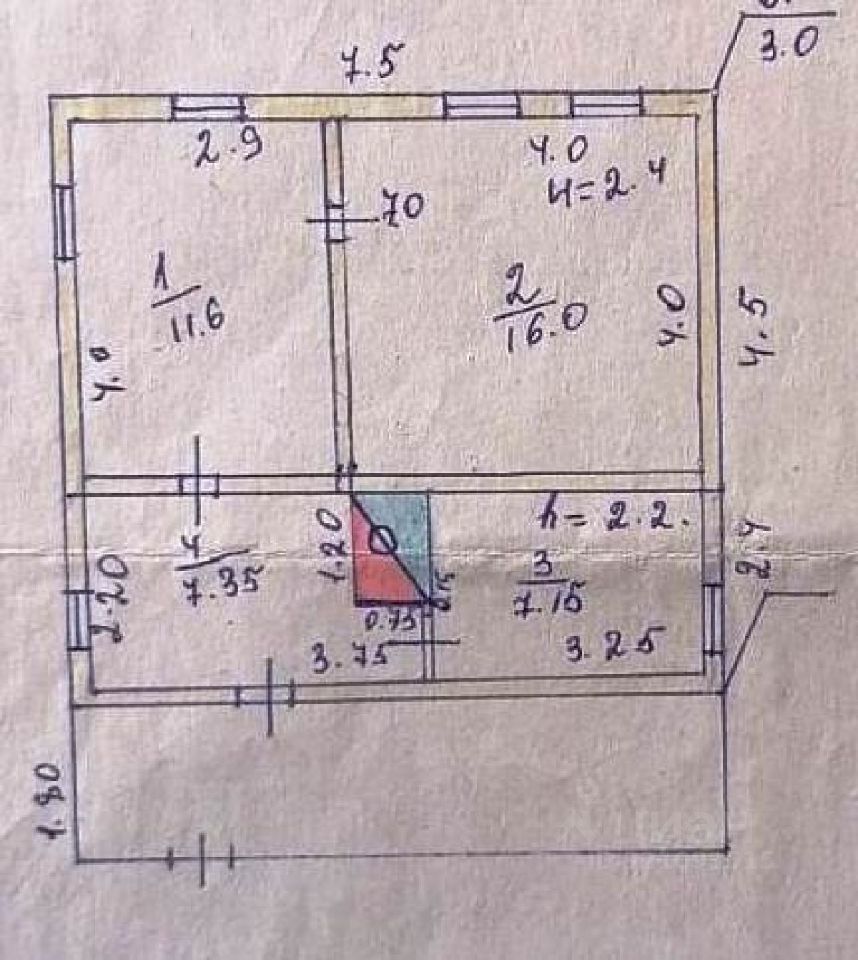 3.0
7.5
2.9
4.0
H=2.4
70
1
11.6
2
16.0
4.0
4.0
4.5
h=2.2.
1.20
4
7.35
2.20
3
7.15
0.15
2.4
0.75
3.75
3.25
1.80